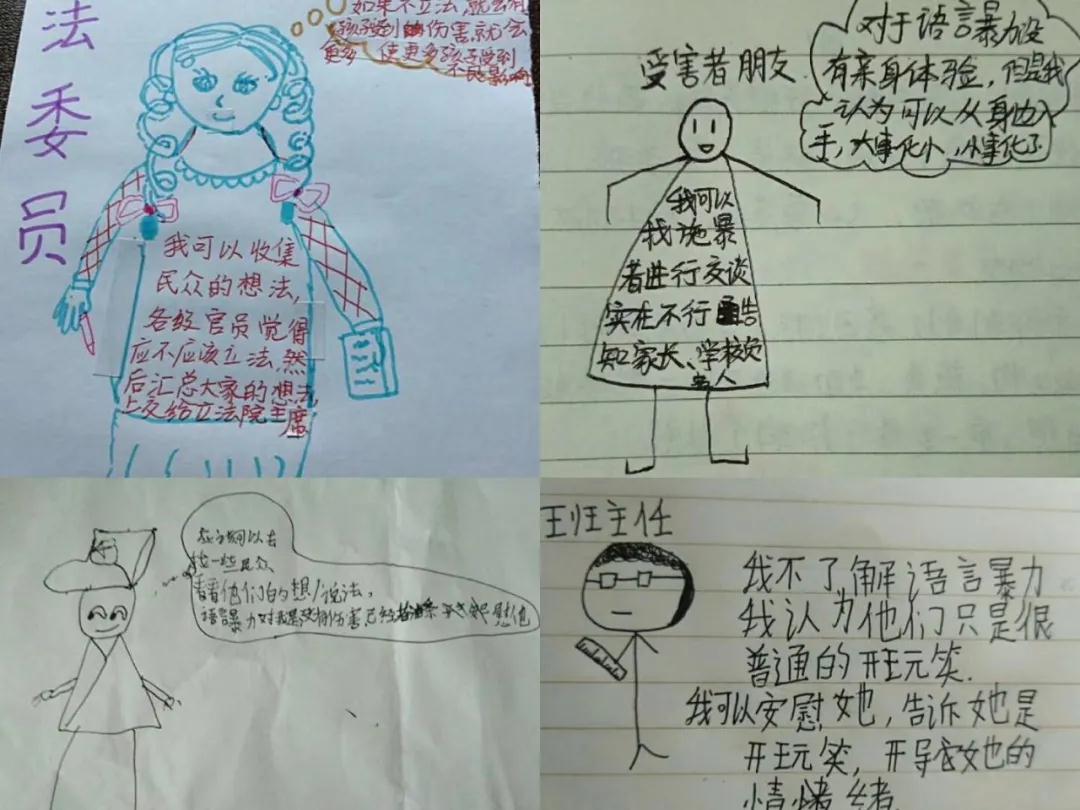 法
委
员
如果不立法,就会有
孩子受到伤害就会
更多,使更多孩子受到
不良影响
我可以收集
民众的想法,
各级官员觉得
应不应该立法,然
后汇总大家的想法,
上交给立法院主席
受害者朋友
对于语言暴力没
有亲身体验,但是我
认为可以从身边入
手,大事化小,小事化了
我可以
找施暴
者进行交谈
实在不行告
知家长、学校负
责人
我可以去
找一些民众
看看他们的想/说法,
语言暴力对我是没有伤害已经
王班主任
我不了解语言暴力
我认为他们只是很
普通的开玩笑.
我可以安慰她,告诉她是
开玩笑,开导她的
情绪